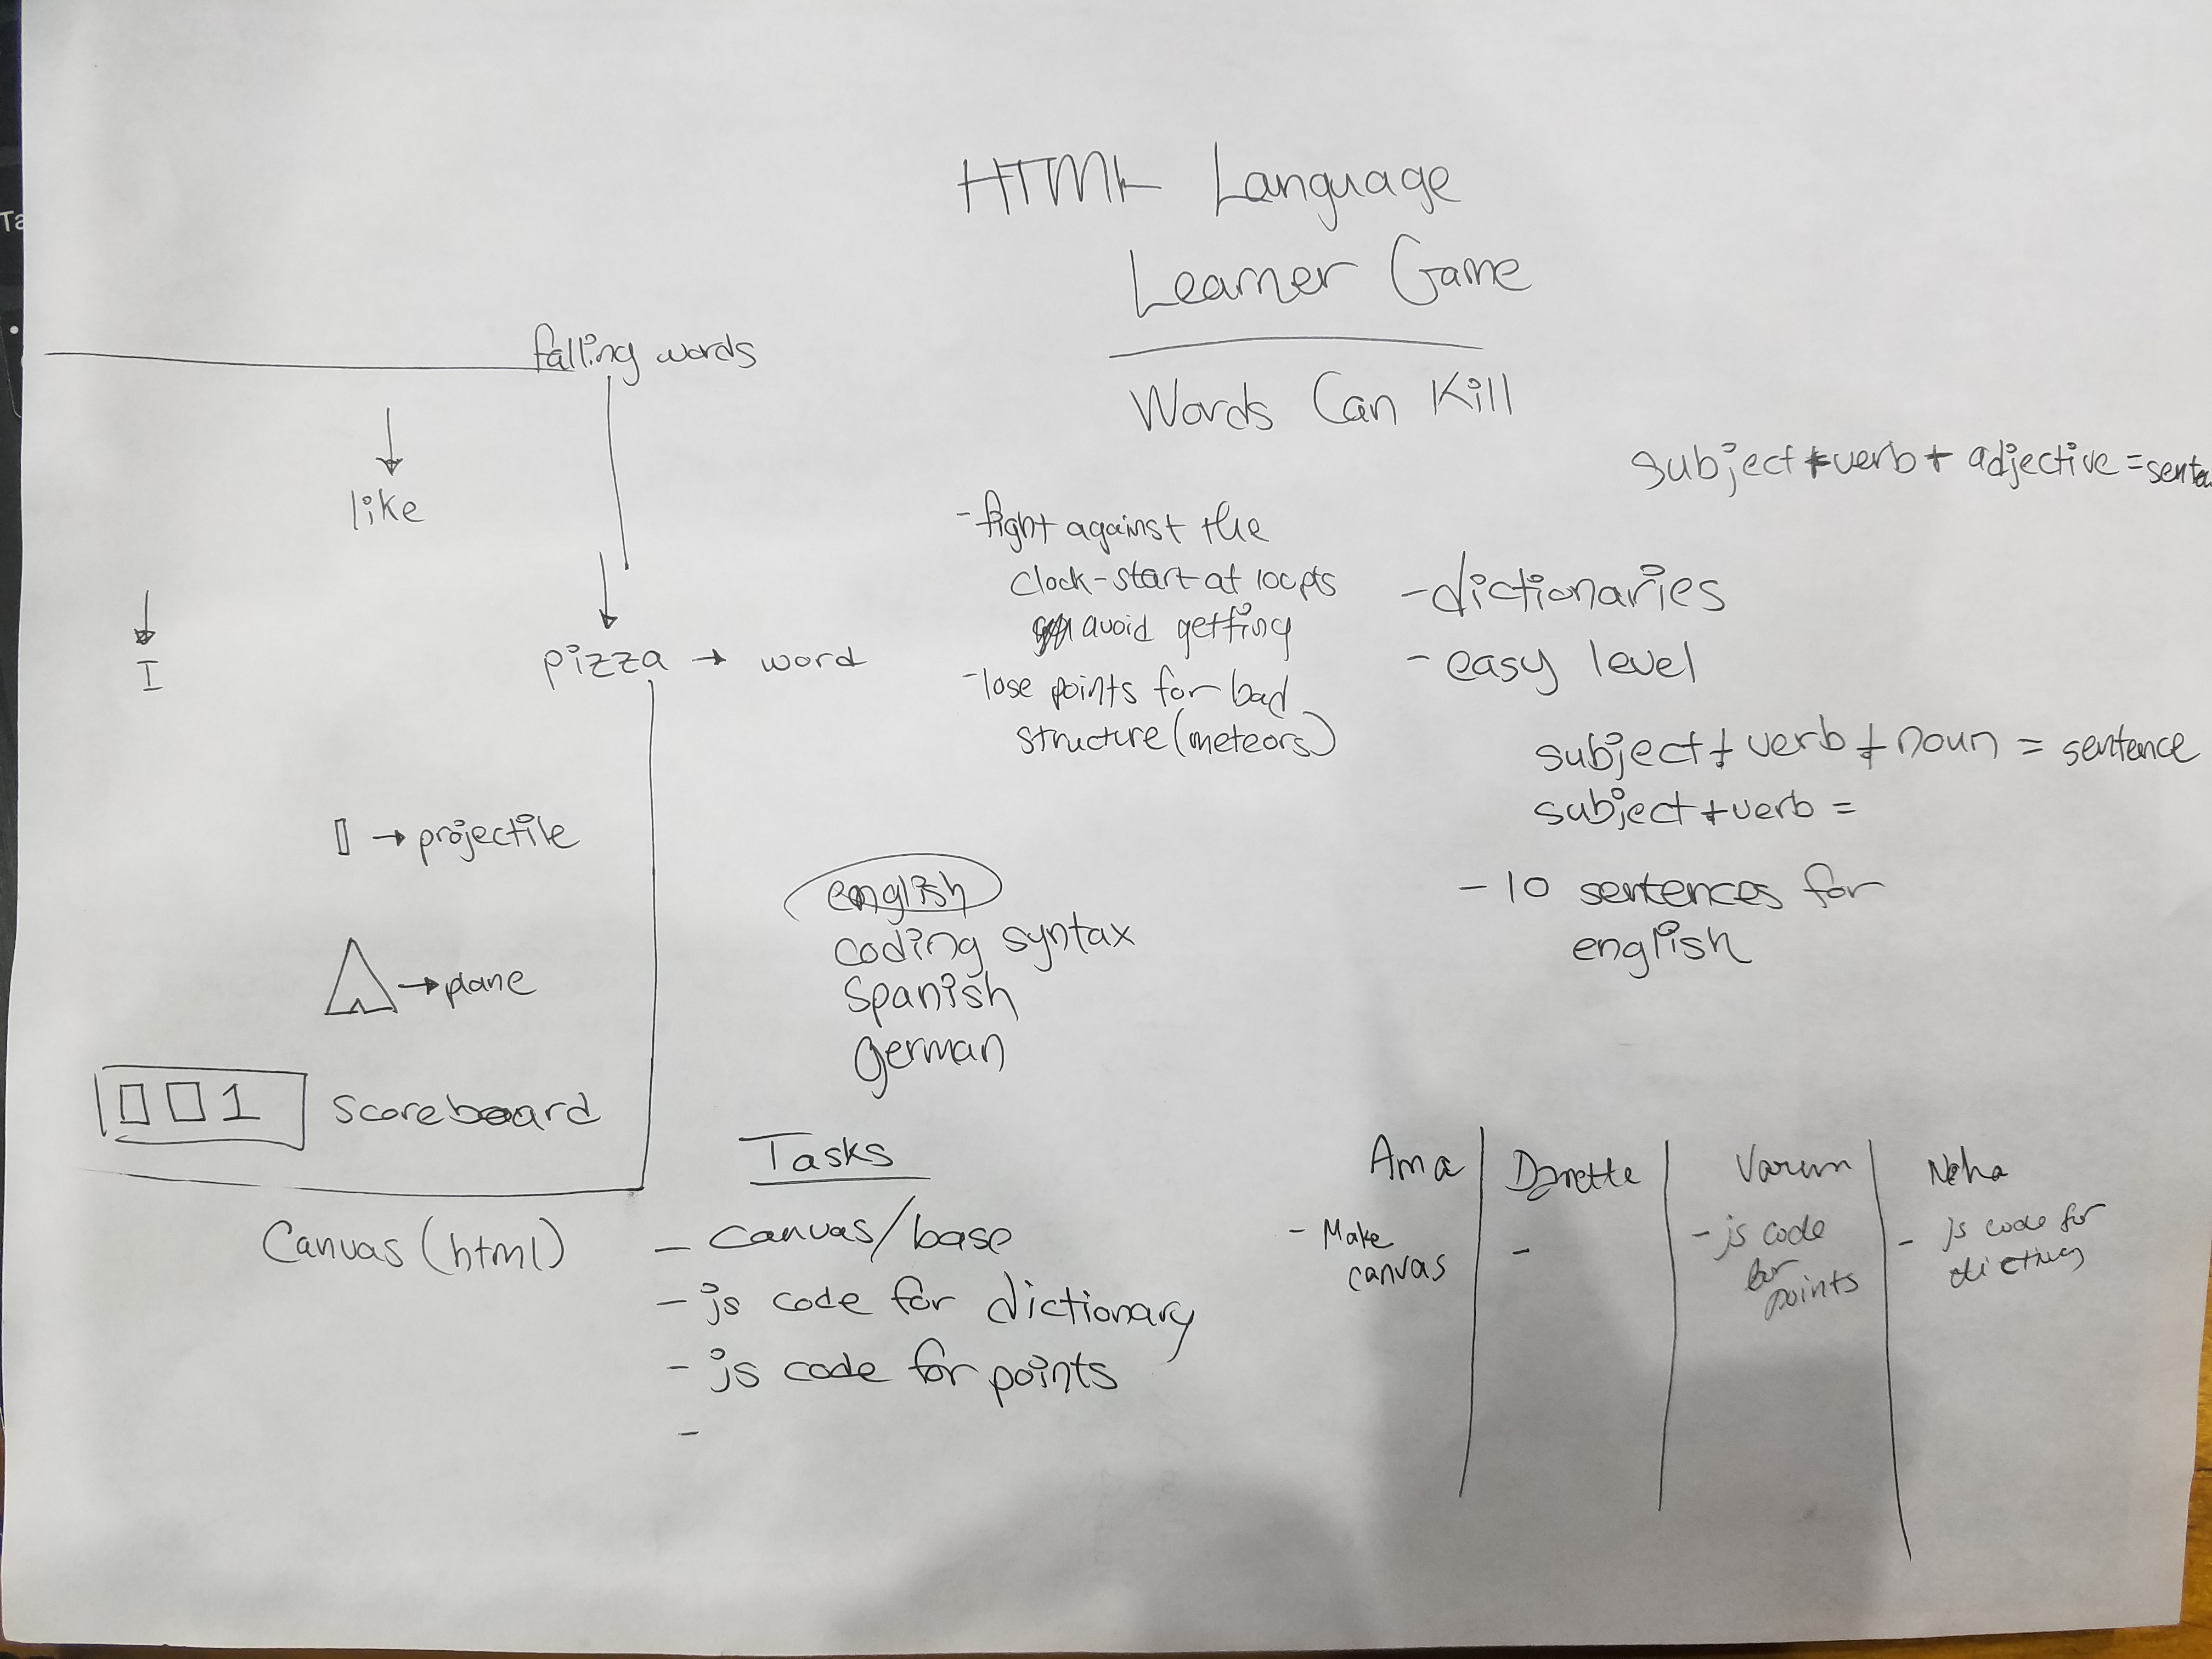 HTML Language
Learner Game
Words Can Kill
falling words
like
I
pizza → word
→ projectile
→ plane
1 scoreboard
Canvas (html)
- fight against the
clock - start at 100pts
avoid getting
- lose points for bad
structure (meteors)
subject + verb + adjective =
- dictionaries
- easy level
subject + verb + noun = sentence
subject + verb =
- 10 sentences for
english
english
coding syntax
Spanish
german
Tasks
- canvas/base
- js code for dictionary
- js code for points
-
Ama
- Make
canvas
-
Varun
- js code
for
points
Neha
- js code for